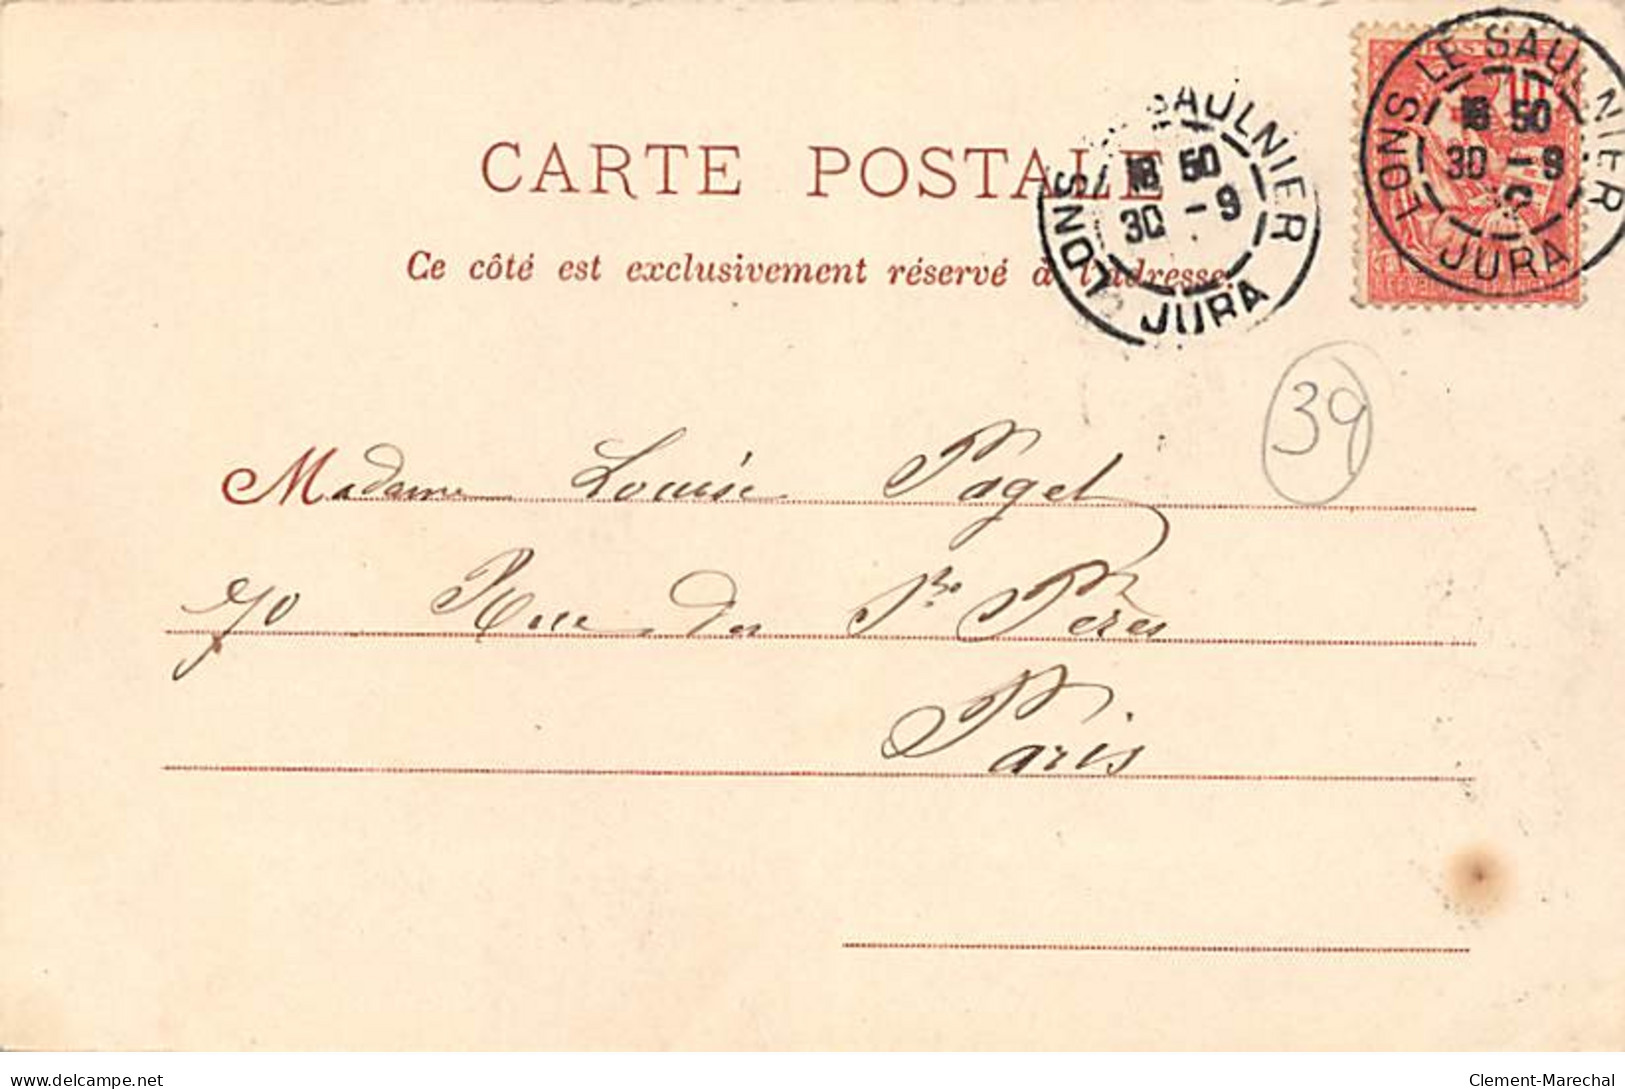 CARTE POSTALE
Ce côté est exclusivement réservé à l'adresse.
LONS LE SAULNIER
18 50
30 - 9
JURA
SAULNIER
18 50
30 - 9
LONS
JURA
10
39
Madame Louise Paget
70 Rue des Sts Pères
Paris
delcampe.net
Clement-Marechal